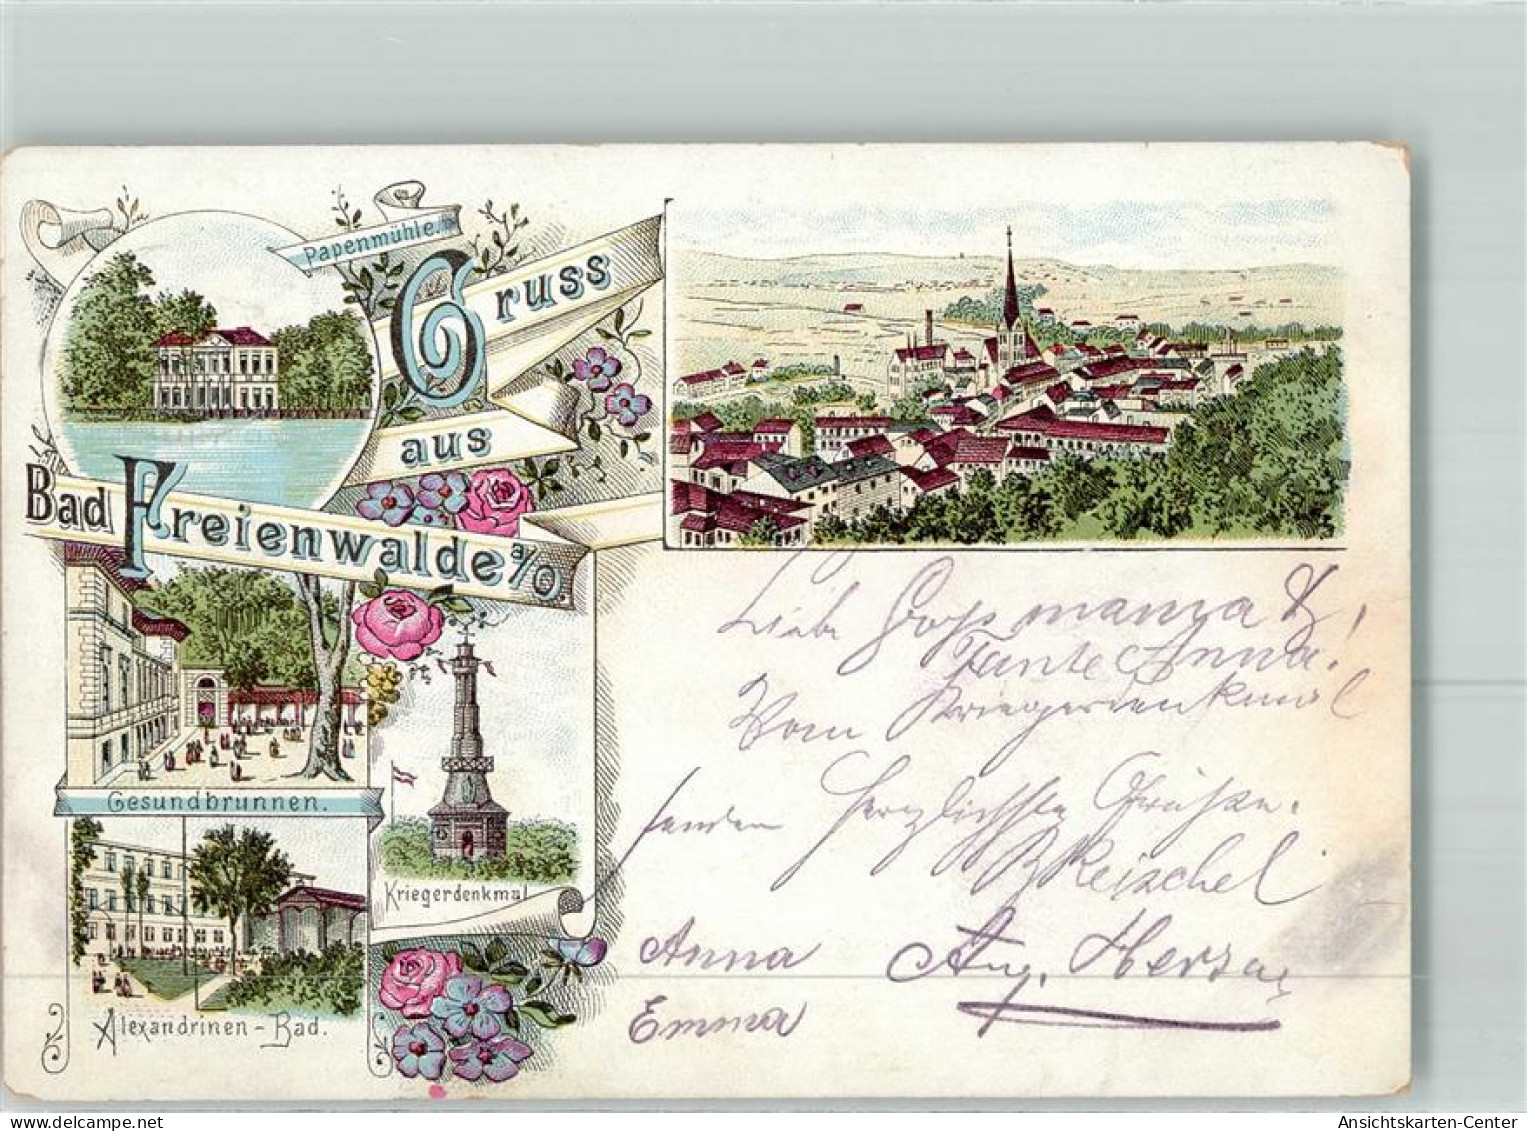 Papenmühle.
Gruss
aus
Bad Freienwalde a/O.
Gesundbrunnen.
Kriegerdenkmal
Alexandrinen-Bad.
Liebe Großmama &
Tante Anna.
Vom Kriegerdenkmal
senden herzlichste Grüße.
Reischel
Anna Aug. Herzog
Emma
Ansichtskarten-Center